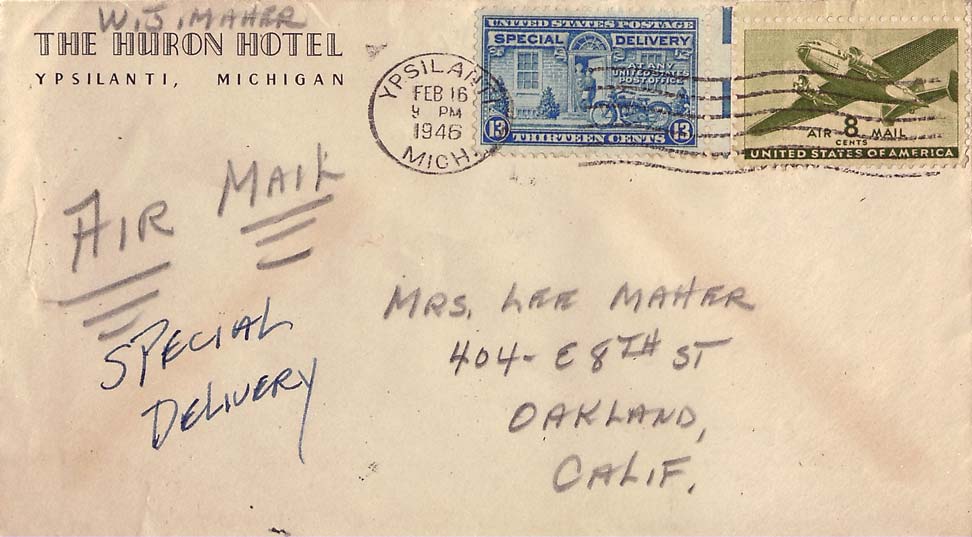 W.J. MAHER
THE HURON HOTEL
YPSILANTI, MICHIGAN
YPSILANTI
FEB 16
9 PM
1946
MICH.
UNITED STATES POSTAGE
SPECIAL DELIVERY
AT ANY
UNITED STATES
POST OFFICE
13 THIRTEEN CENTS 13
AIR 8 MAIL
CENTS
UNITED STATES OF AMERICA
AIR MAIL
SPECIAL
DELIVERY
MRS. LEE MAHER
404- E 8TH ST
OAKLAND,
CALIF.